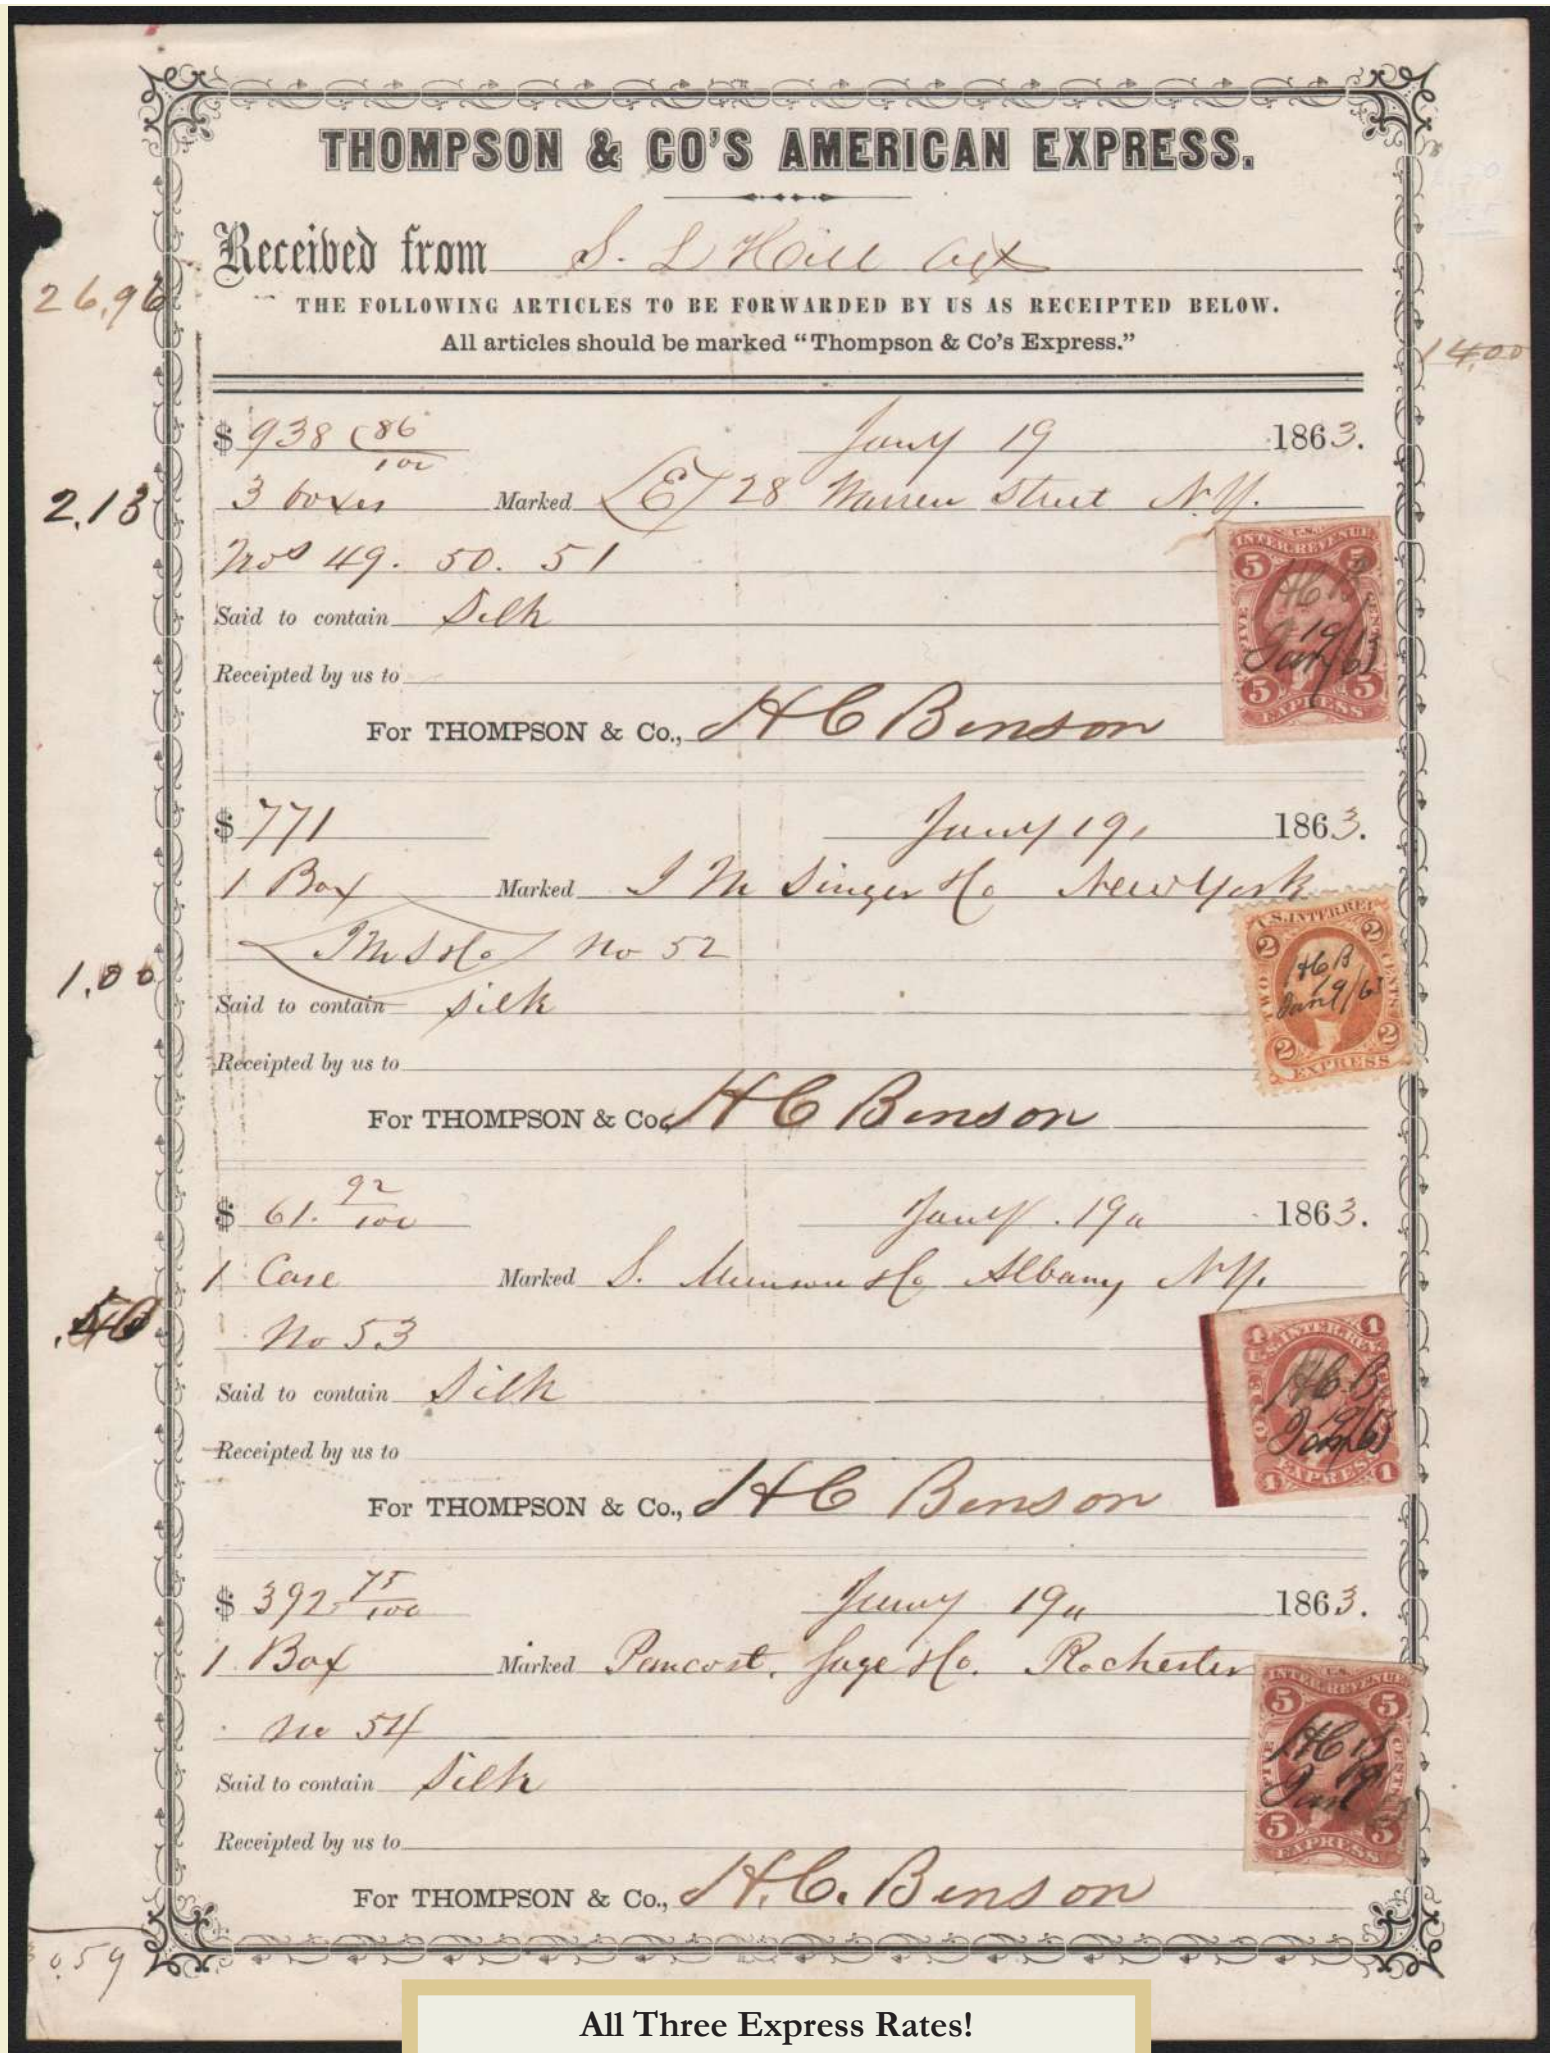 THOMPSON & CO'S AMERICAN EXPRESS.
Received from S. L Hill
26,96
THE FOLLOWING ARTICLES TO BE FORWARDED BY US AS RECEIPTED BELOW.
All articles should be marked "Thompson & Co's Express."
14,00
$ 938 86/100 Jany 19 1863.
2.13 3 boxes Marked E 28 Warren Street N.Y.
Nos 49. 50. 51
Said to contain Silk
Receipted by us to
For THOMPSON & Co., H C Benson
U.S. INTER. REVENUE
5 5
FIVE CENTS
H C B
Jan 19/63
5 5
EXPRESS
$ 771 Jany 19, 1863.
1 Box Marked I M Singer & Co New York
I M S & Co No 52
1.00
Said to contain silk
Receipted by us to
For THOMPSON & Co., H C Benson
U.S. INTER. REV.
2 2
TWO CENTS
H C B
Jan 19/63
2 2
EXPRESS
$ 61. 92/100 Jany. 19" 1863.
1 Case Marked S. Munson & Co Albany N.Y.
No 53
Said to contain Silk
Receipted by us to
For THOMPSON & Co., H C Benson
U.S. INTER. REV.
1 1
ONE CENT
H C B
Jan 19/63
1 1
EXPRESS
$ 392 75/100 Jany 19" 1863.
1 Box Marked Pancost, Sage & Co. Rochester
No 54
Said to contain Silk
Receipted by us to
For THOMPSON & Co., H. C. Benson
U.S. INTER. REVENUE
5 5
FIVE CENTS
H C B
Jan 19
5 5
EXPRESS
All Three Express Rates!